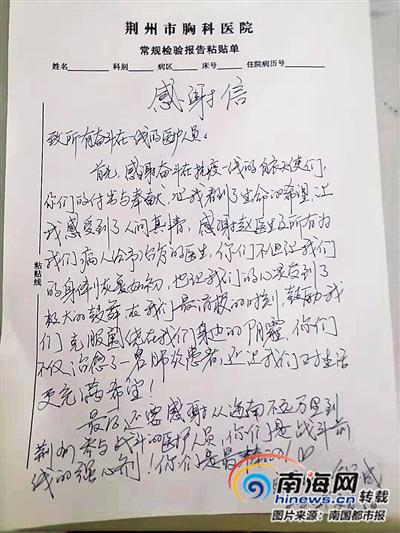 荆州市胸科医院
常规检验报告粘贴单
姓名 科别 病区 床号 住院病历号
感谢信
致所有奋斗在一线的医护人员:
首先,感谢奋斗在抗疫一线的白衣天使们,
你们的付出与奉献,让我看到了生命的希望,让
我感受到了人间真情,感谢赵医生及所有为
我们病人给予治疗的医生,你们不但让我们
的身体恢复如初,也让我们的心灵得到了
极大的鼓舞,在我们最消极的时刻,鼓励我
们克服围绕在我们身边的阴霾,你们
不仅治愈了一名肺炎患者,还让我们对生活
更充满希望!
最后还要感谢从海南不远万里到
荆州参与战斗的医护人员,你们是战斗前
线的强心剂!你们是最棒
粘贴线
南海网
hinews.cn 转载
图片来源:南国都市报